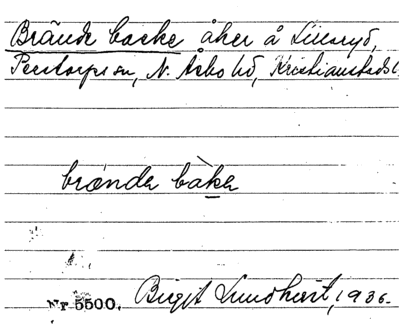 Brände backe åker å Lillaryd,
Perstorps sn, N. Åsbo hd, Kristianstads l.
brænda bàka
Nr 5500. Birgit Lundkvist, 1936.